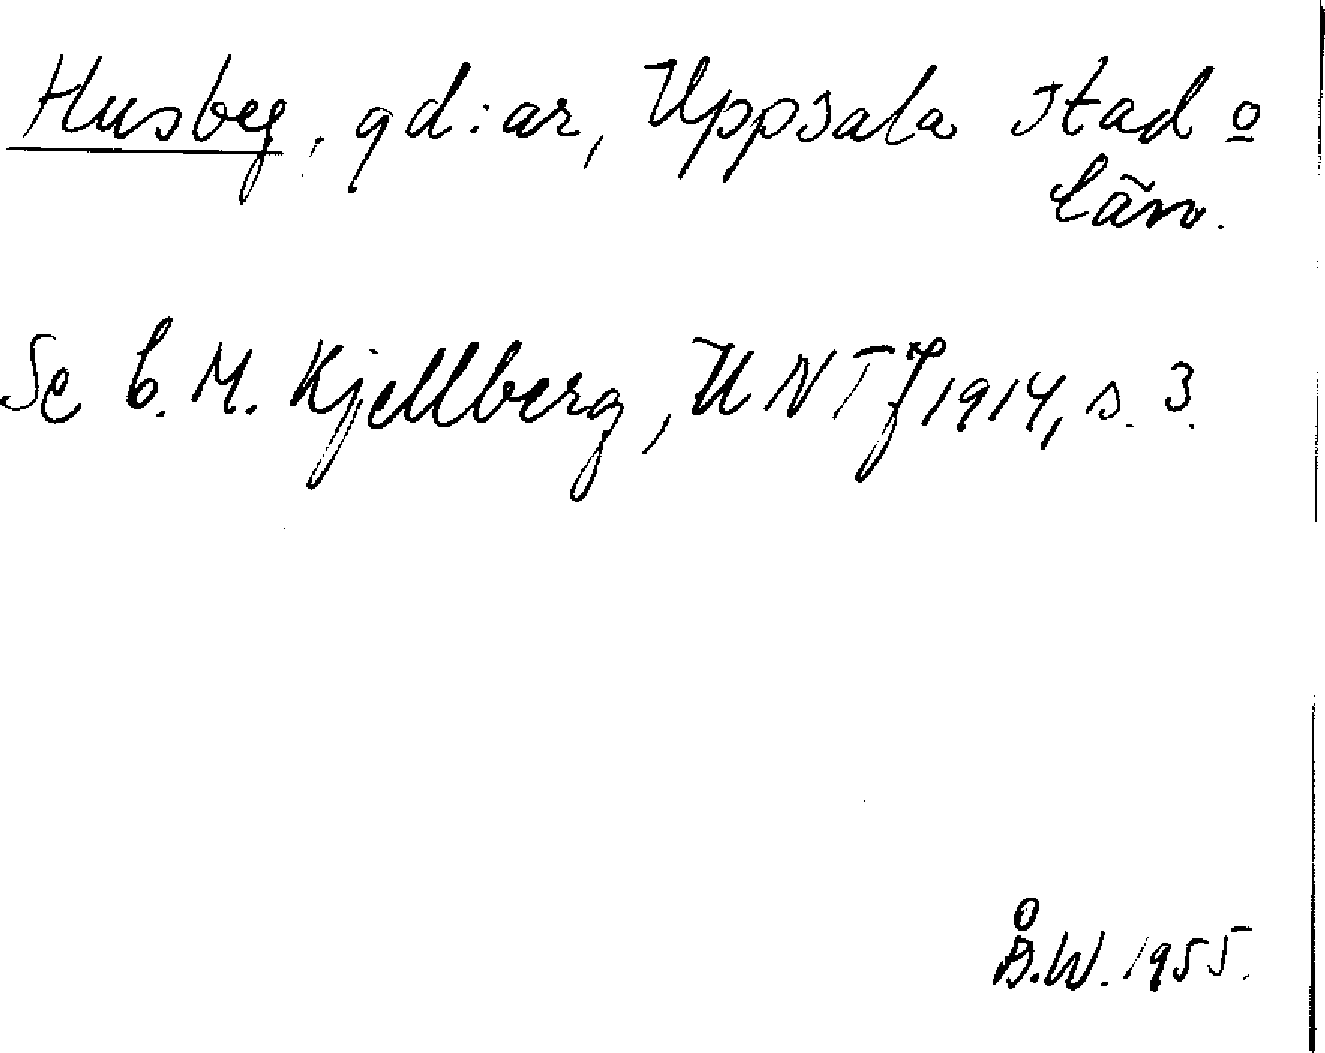 Husby, gd:ar, Uppsala stad o
län.
Se C. M. Kjellberg, UNT J 1914, s. 3.
Å.W. 1955.